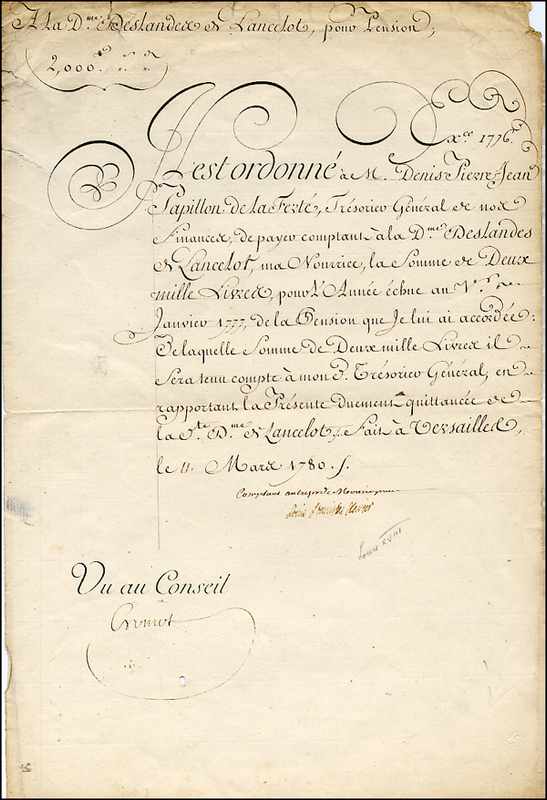 A la D.me Deslandes de Lancelot, pour Pension,
2,000
Xce 1776.
Il est ordonné à M. Denis Pierre Jean
Papillon de la Ferté, Trésorier Général de nos
Finances, de payer comptant à la D.me Deslandes
de Lancelot, ma Nourrice, la Somme de Deux
mille Livres, pour l'Année échue au 1.er
Janvier 1777, de la Pension que Je lui ai accordée:
De laquelle Somme de Deux mille Livres il
sera tenu compte à mon d. Trésorier Général, en
rapportant la Présente Duement quittancée de
la d.te D.me de Lancelot, Fait à Versailles,
le 11. Mars 1780.
Comptant au trésor de Monseigneur
Louis Stanislas Xavier
Louis XVIII
Vu au Conseil
Cromot